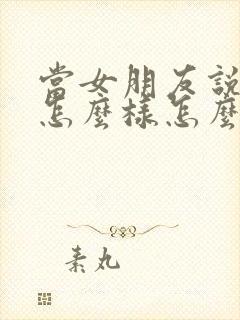 當女朋友說
怎麼樣怎麼
素丸